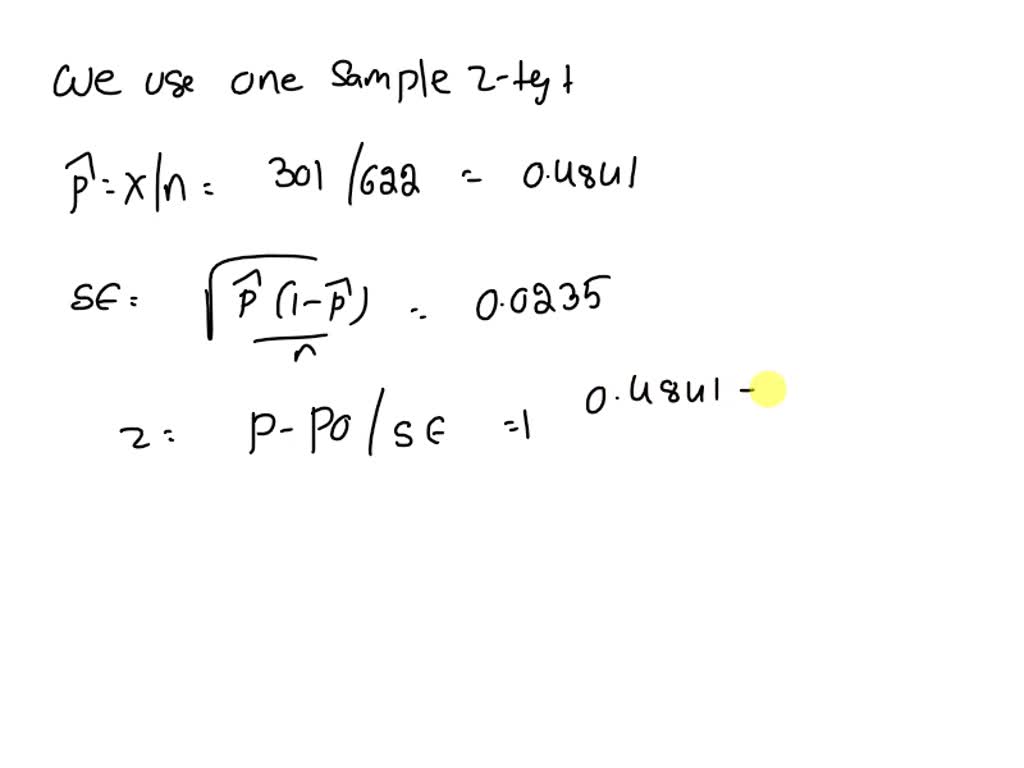 We use one sample z-test
p̂ = x/n = 301/622 = 0.4841
SE = √(p̂(1-p̂)/n) = 0.0235
z = p-p0/SE =1 0.4841 -